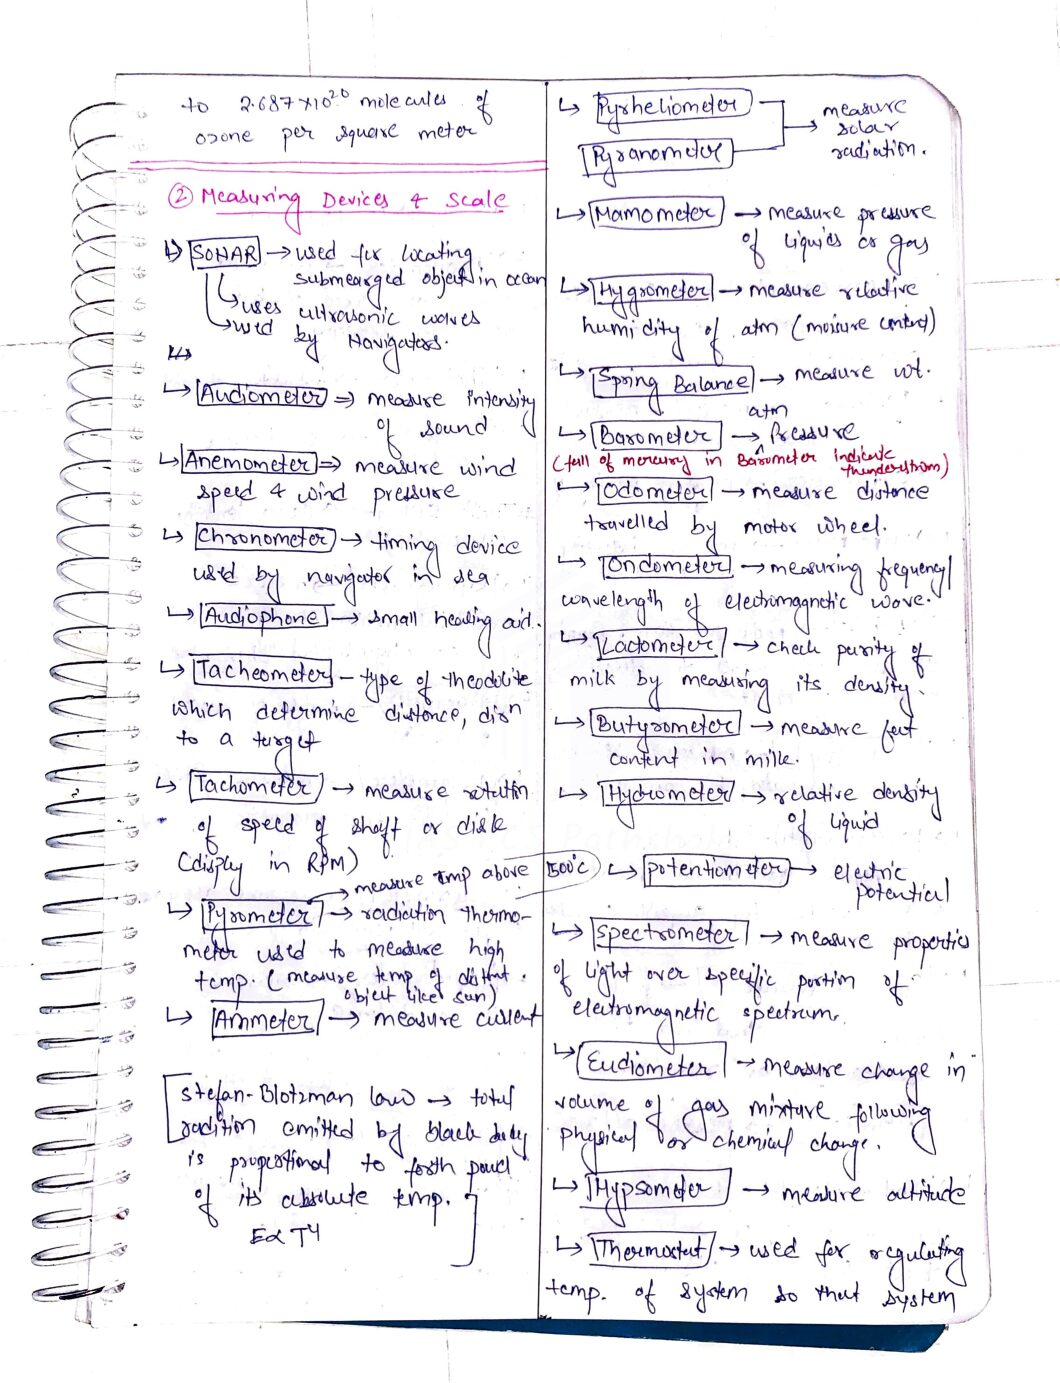 to 2.687×10²⁰ molecules of
ozone per square meter
② Measuring Devices & Scale
↳ SONAR → used for locating
submearged object in ocean
↳ uses ultrasonic waves
↳ used by Navigators.
↳ Audiometer ⇒ measure intensity
of sound
↳ Anemometer ⇒ measure wind
speed & wind pressure
↳ Chronometer → timing device
used by navigator in sea
↳ Audiophone → small healing aid.
↳ Tacheometer – type of theodolite
which determine distance, dirⁿ
to a target
↳ Tachometer → measure rotation
of speed of shaft or disk
(display in RPM)
→ measure temp above 1500°C
↳ Pyrometer → radiation thermo-
meter used to measure high
temp. (measure temp of distant
object like sun)
↳ Ammeter → measure current
[Stefan-Blotzman law → total
radition emitted by black body
is propertional to forth power
of its absolute temp.
E α T4 ]
↳ Pyrheliometer
Pyranometer
→ measure
solar
radiation.
↳ Mamometer → measure pressure
of liquids or gas
↳ Hygrometer → measure relative
humidity of atm (moisure content)
↳ Spring Balance → measure wt.
↳ Barometer → atm Pressure
(fall of mercury in Barometer indicate
thunderstrom)
↳ Odometer → measure distance
travelled by motor wheel.
↳ Ondometer → measuring frequency/
wavelength of electromagnetic wave.
↳ Lactometer → check purity of
milk by measuring its density.
↳ Butyrometer → measure fat
content in milk.
↳ Hydrometer → relative density
of liquid
↳ potentiometer → electric
potential
↳ Spectrometer → measure properties
of light over specific portion of
electromagnetic spectrum.
↳ Eudiometer → measure change in
volume of gas mixture following
physical or chemical change.
↳ Hypsometer → measure altitude
↳ Thermostat → used for regulating
temp. of system so that system